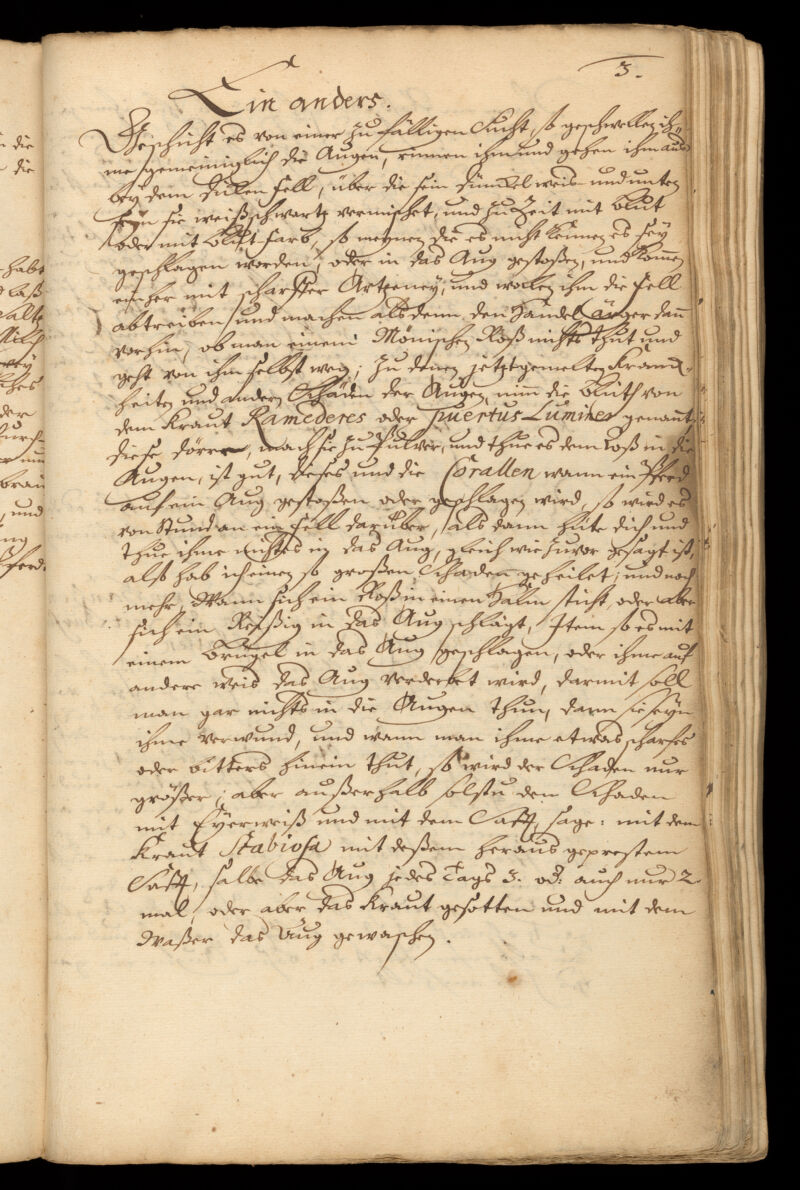 die
die
habt
laß
alte
der
und
Pferd:
3.
Ein anders.
Geschicht es von einer zufälligen Sucht, so geschwellen ih„
me gemeiniglich die Augen, rinnen ihm und gehen ihm aus
bey dem Fell, über die sein weis und unten
seyn sie weiß schwartz vermischet, und zu Zeit mit blut
oder mit blut farb, so meynen die es nicht kennen es sey
geschlagen worden, oder in das Aug gestoßen, und kommen
mit scharffer Artzeney, und wollen ihm die Fell
abtreiben, und machen alsdenn den Handel ärger dann
vorhin, ob man einem Mönischen Roß nichts thut und
geht von ihm selbst weg; zu denen jetztgemelten Kranck-
heiten und andern Schäden der Augen, nim die Blüth von
dem Kraut Ramederes oder puertus Lumines genannt,
diese dörre, mach sie zu Pulver, und thue es dem Roß in die
Augen, ist gut, dieses und die Corallen wann ein Pferd
auf ein Aug gestoßen oder geschlagen wird, so wird es
von Stund an ein Fell darüber, als dann hüte dich und
thue ihme nichts in das Aug, gleich wie zuvor gesagt ist,
also hab ich einen so großen Schaden geheilet; und noch
mehr, Wann sich ein Roß in einen Halm sticht, oder aber
sich ein Reißig in das Aug schlägt, Item so es mit
einem Brügel in das Aug geschlagen, oder ihme auf
andere weis das Aug verderbet wird, darmit soll
man gar nichts in die Augen thun, dann sie seyn
ihme verwund, und wann man ihme etwas scharfes
oder bitters hinein thut, so wird der Schaden nur
größer; aber außerhalb solstu den Schaden
mit Eyerweiß und mit dem Safft, sage: mit dem
Kraut Stabiosa mit deßem heraus geprestem
Safft, salbe das Aug jedes Tags 3. od: auch nur 2
mal, oder aber das Kraut gesotten und mit dem
Waßer das Aug gewaschen.